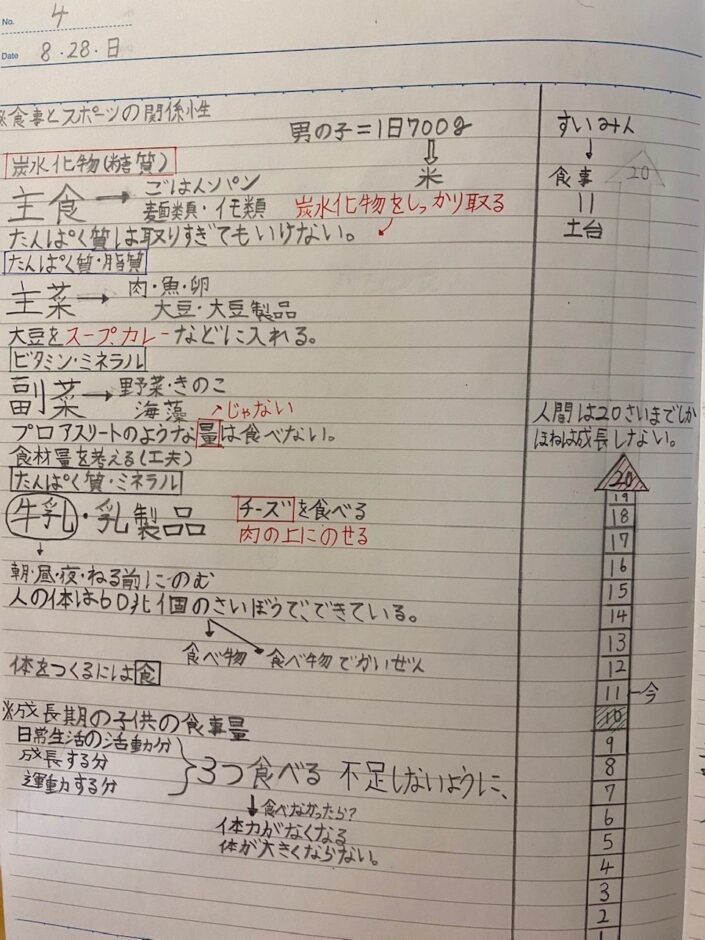 No. 4
Date 8・28・日
※食事とスポーツの関係性
男の子＝1日700g
米
炭水化物(糖質)
主食→ごはん・パン
麺類・イモ類
炭水化物をしっかり取る
たんぱく質は取りすぎてもいけない。
たんぱく質・脂質
主菜→肉・魚・卵
大豆・大豆製品
大豆をスープ、カレーなどに入れる。
ビタミン・ミネラル
副菜→野菜・きのこ
海藻
じゃない
プロアスリートのような量は食べない。
食材量を考える(工夫)
たんぱく質・ミネラル
牛乳・乳製品
チーズを食べる
肉の上にのせる
朝・昼・夜・ねる前にのむ
人の体は60兆個のさいぼうで、できている。
食べ物
食べ物でかいぜん
体をつくるには食
※成長期の子供の食事量
日常生活の活動分
成長する分
運動する分
3つ食べる 不足しないように、
食べなかったら?
体力がなくなる
体が大きくならない。
すいみん
食事
||
土台
20
人間は20さいまでしか
ほねは成長しない。
20
19
18
17
16
15
14
13
12
11 今
10
9
8
7
6
5
4
3
2
1